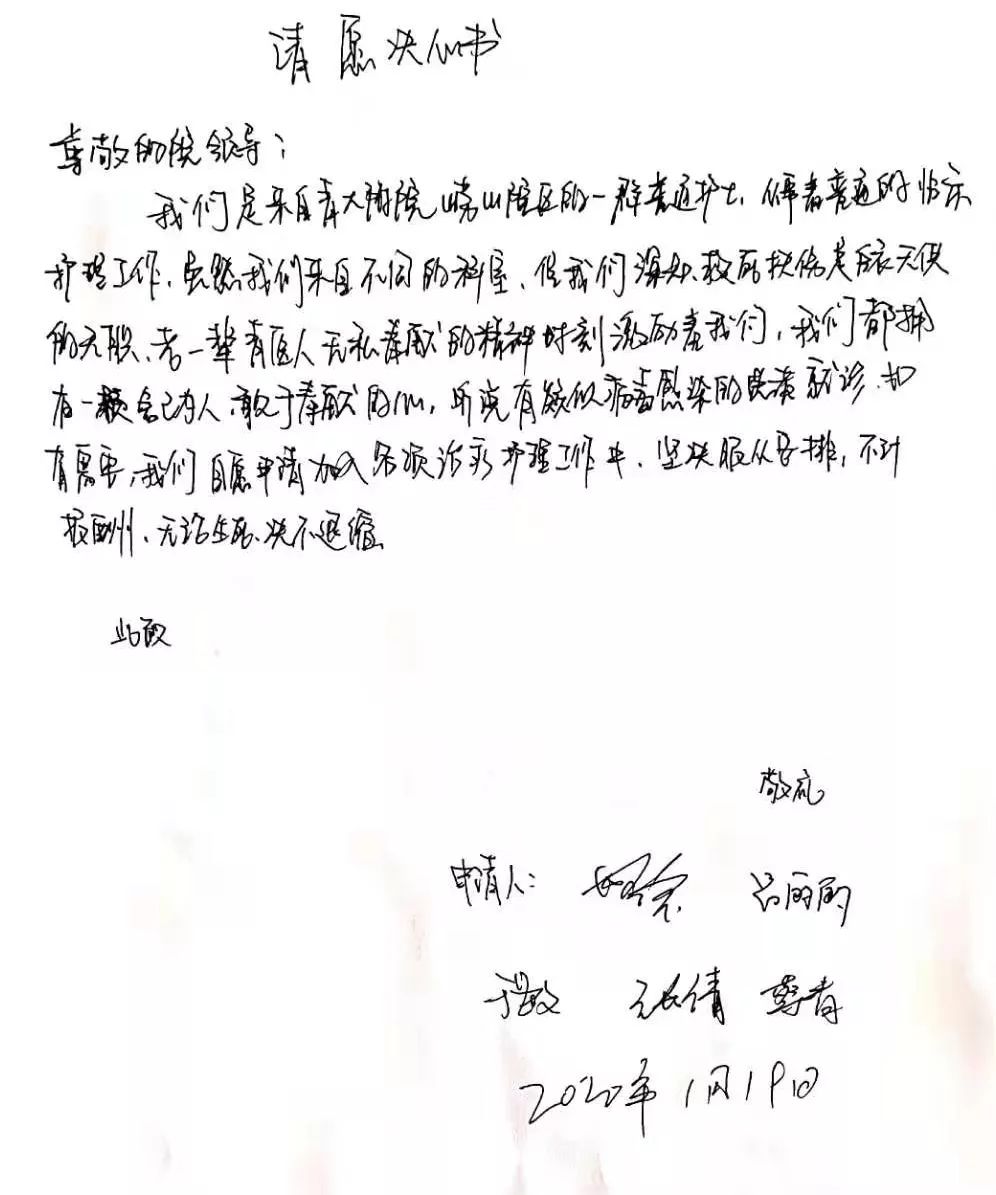 请愿决心书
尊敬的院领导：
我们是来自青大附院崂山院区的一群普通护士，从事着普通的临床
护理工作，虽然我们来自不同的科室，但我们深知，救死扶伤是白衣天使
的天职，老一辈青医人无私奉献的精神时刻激励着我们，我们都拥
有一颗舍己为人，敢于奉献的心，听说有疑似病毒感染的患者就诊，如
有需要，我们自愿申请加入各项治疗护理工作中，坚决服从安排，不计
报酬，无论生死，决不退缩
此致
敬礼
申请人： 吕丽丽
张倩
2020年1月19日